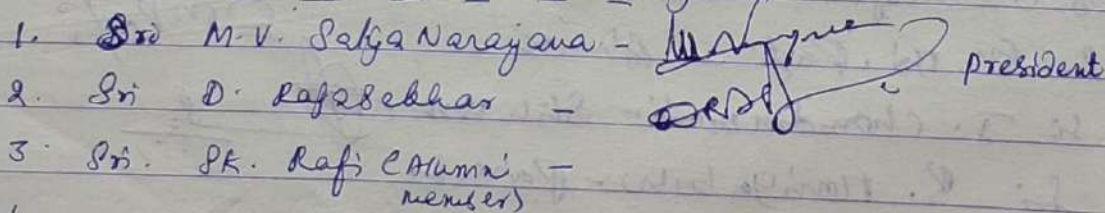 1. Sri M.V. Satya Narayana -
president
2. Sri D. Rajasekhar -
3. Sri. SK. Rafi (Alumni -
member)